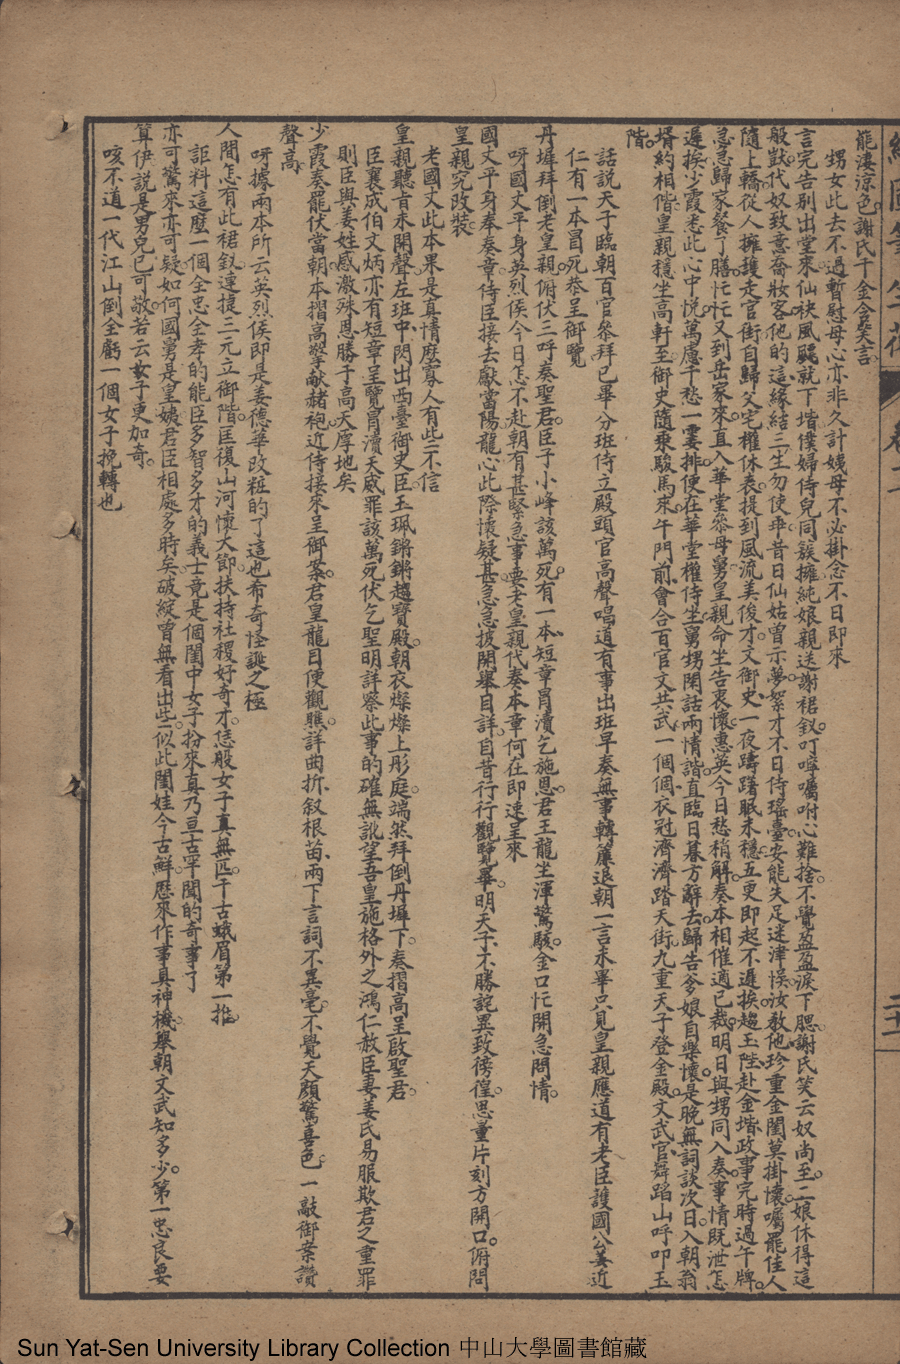 能淒涼色謝氏千金含笑言
甥女此去不過暫慰母心亦非久計姨母不必掛念不日即來
言完告別出堂來仙袂風飄就下堦僕婦侍兒同簇擁純娘親送謝裙釵叮嚀囑咐心難捨不覺盈盈淚下腮謝氏笑云奴尚至二娘休得這
般獃代奴致意喬妝客他的這緣結三生勿使乖昔日仙姑曾示夢絮才不日侍瑤臺安能失足迷津悞汝教他珍重金閨莫掛懷囑罷佳人
隨上轎從人擁護走官街自歸父宅權休表提到風流美俊才文御史一夜躊躇眠未穩五更即起不遲挨趨玉陛赴金堦政事完時過午牌
急急歸家餐了膳忙忙又到岳家來直入華堂叅母舅皇親命坐告衷懷惠英今日愁稍解奏本相催適已裁明日與甥同入奏事情既泄怎
遲挨少霞悉此心中悅萬慮千愁一霎排便在華堂權侍坐舅甥閒話兩情諧直臨日暮方辭去歸告爹娘自樂懷是晚無詞談次日入朝翁
壻約相偕皇親穩坐高軒至御史隨乘駿馬來午門前會合百官文共武一個個衣冠濟濟踏天街九重天子登金殿文武官舞蹈山呼叩玉
階
話說天子臨朝百官叅拜已畢分班侍立殿頭官高聲唱道有事出班早奏無事轉簾退朝一言未畢只見皇親應道有老臣護國公姜近
仁有一本冒死恭呈御覽
丹墀拜倒老皇親俯伏三呼奏聖君臣子小峰該萬死有一本短章冒瀆乞施恩君王龍坐渾驚駭金口忙開急問情
呀國丈平身英烈侯今日怎不赴朝有甚緊急事要老皇親代奏本章何在即速呈來
國丈平身奉奏章侍臣接去獻當陽龍心此際懷疑甚急急披開舉目詳自昔行行觀覽畢明天子不勝詫異致徬徨思量片刻方開口俯問
皇親究改裝
老國丈此本果是真情麼寡人有些不信
皇親聽旨未開聲左班中閃出西臺御史臣玉珮鏘鏘趨寶殿朝衣燦燦上彤庭端然拜倒丹墀下奏摺高呈啟聖君
臣襄成伯文炳亦有短章呈覽冒瀆天威罪該萬死伏乞聖明詳察此事的確無訛望吾皇施格外之鴻仁赦臣妻姜氏易服欺君之重罪
則臣與姜姓感激殊恩勝于高天厚地矣
少霞奏罷伏當朝本摺高擎献赭袍近侍接來呈御案君皇龍目便觀瞧詳曲折叙根苗兩下言詞不異毫不覺天顏驚喜色一敲御案讚
聲高
呀據兩本所云英烈侯即是姜德華改粧的了這也希奇怪誕之極
人間怎有此裙釵連捷三元立御階匡復山河懷大節扶持社稷好奇才恁般女子真無匹千古蛾眉第一推
詎料這麼一個全忠全孝的能臣多智多才的義士竟是個閨中女子扮來真乃亘古罕聞的奇事了
亦可驚來亦可疑如何國舅是皇姨君臣相處多時矣破綻曾無看出些似此閨娃今古鮮歷來作事真神機舉朝文武知多少第一忠良要
算伊說是男兒已可敬若云女子更加奇
咳不道一代江山倒全虧一個女子挽轉也
卷